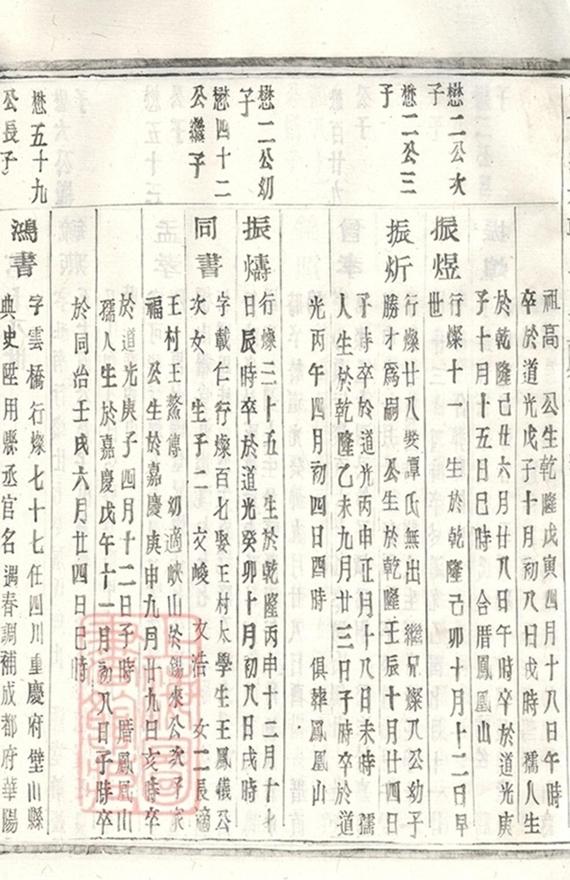 祖高　公生乾隆戊寅四月十八日午時
卒於道光戊子十月初八日戌時　孺人生
於乾隆己丑六月廿八日午時卒於道光庚
子十月十五日巳時　合厝鳳凰山
懋二公次
子
振煜
行燦十一　生於乾隆己卯十月十二日早
世
懋二公三
子
振炘
行燦廿八娶譚氏無出　繼兄燦八公幼子
勝才爲嗣　公生於乾隆壬辰十月廿四日
子時卒於道光丙申正月十八日未時　孺
人生於乾隆乙未九月廿三日子時卒於道
光丙午四月初四日酉時　俱葬鳳凰山
懋二公幼
子
振燽
行燦三十五　生於乾隆丙申十二月十七
日辰時卒於道光癸卯十月初八日戌時
懋四十二
公繼子
同書
字載仁行燦百七娶王村太學生王鳳儀公
次女　生子二　文峻　文浩　女二長適
王村王鰲傳　幼適峽山於錫來公次子永
福　公生於嘉慶庚申九月廿九日亥時卒
於道光庚子四月十二日子時　厝鳳凰山
孺人生於嘉慶戊午十一月初八日子時卒
於同治壬戌六月廿四日巳時
懋五十九
公長子
鴻書
字雲橋行燦七十七任四川重慶府壁山縣
典史陞用縣丞官名　遇春調補成都府華陽